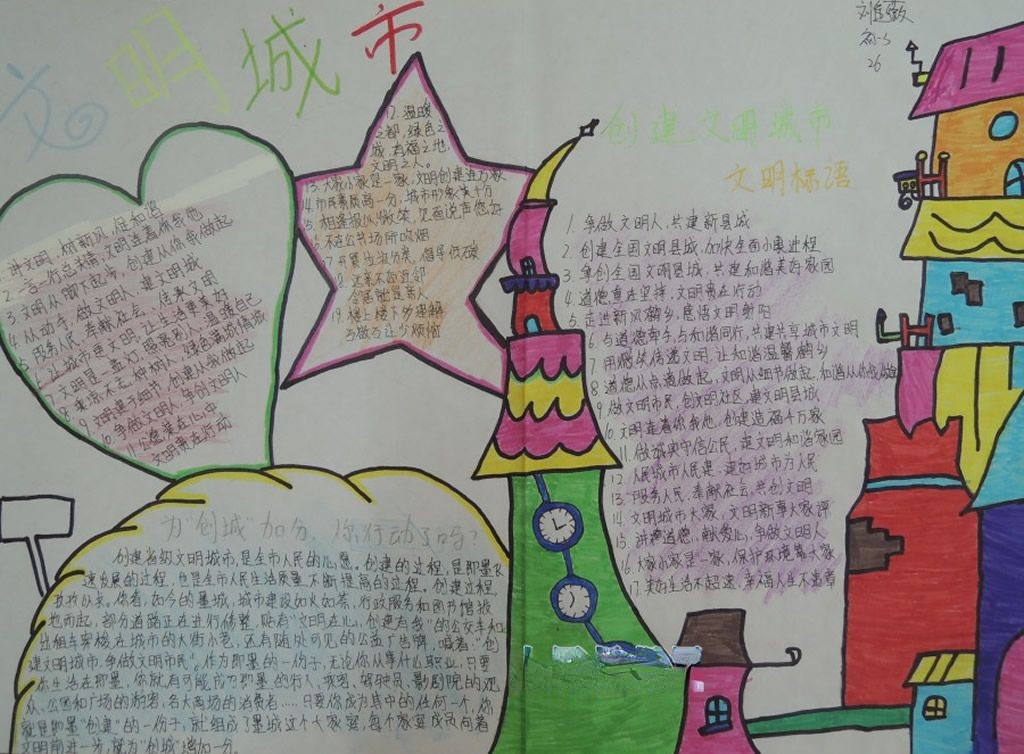 文明城市
刘
初一5
26
讲文明，树新风，促和谐
2.言一行总关情，文明连着你我他
3.文明从脚下起步，创建从你我做起
4.从动手，做文明人，建文明城
5.服务人民，奉献社会，传承文明
6.让城市更文明，让生活更美好
7.文明是一盏灯，照亮别人，温暖自己
8.来宾不
9.文明建于细节，创建从我做起
10.争做文明人，争创文明人
11.公德装在心中
文明贵在行动
12.温暖
之都，绿色之
城，有福之地，
文明之人。
13.大家小家是一家，文明创建进万家
14.市民素质高一分，城市形象美十分
15.相逢报以微笑，见面说声您好
16.不在公共场所吸烟
17.开展垃圾分类，倡导低碳
18.远亲不如近邻
邻居就是亲人
19.楼上楼下多理解
互敬互让少烦恼
创建文明城市
文明标语
1.争做文明人，共建新县城
2.创建全国文明县城，加快全面小康进程
3.争创全国文明县城，共建和谐美好家园
4.道德重在坚持，文明贵在行动
5.走进新风鹤乡，感悟文明射阳
6.与道德牵手，与和谐同行，共建共享城市文明
7.用微笑传递文明，让和谐温馨鹤乡
8.道德从点滴做起，文明从细节做起，和谐从你我做起
9.做文明市民，创文明社区，建文明县城
10.文明连着你我他，创建造福千万家
11.做诚实守信公民，建文明和谐家园
12.人民城市人民建 建好城市为人民
13.服务人民，奉献社会，共创文明
14.文明城市大家，文明新事大家评
15.讲道德，献爱心，争做文明人
16.大家小家是一家，保护环境靠大家
17.美好生活不超速，幸福人生不出章
为“创城”加分，你行动了吗？
创建省级文明城市，是全市人民的心愿。创建的过程，是即墨飞
速发展的过程，也是全市人民生活质量不断提高的过程。创建过程，
你看，如今的墨城，城市建设如火如荼，行政服务和图书馆拔
地而起，部分道路正在进行修整，贴有“文明在心，创建有我”的公交车和
出租车穿梭在城市的大街小巷，还有随处可见的公益广告牌，喊着：“创
建文明城市，争做文明市民”。作为即墨的一份子，无论你从事什么职业，只要
你生活在即墨，你就有可能成为即墨的行人、乘客、驾驶员、影剧院的观
众、公园和广场的游客、各大商场的消费者……只要你成为其中的任何一个，你
就是即墨“创建”的一份子，就组成了墨城这个大家庭，每个家庭成员向着
文明前进一步，就为“创城”增加一分。